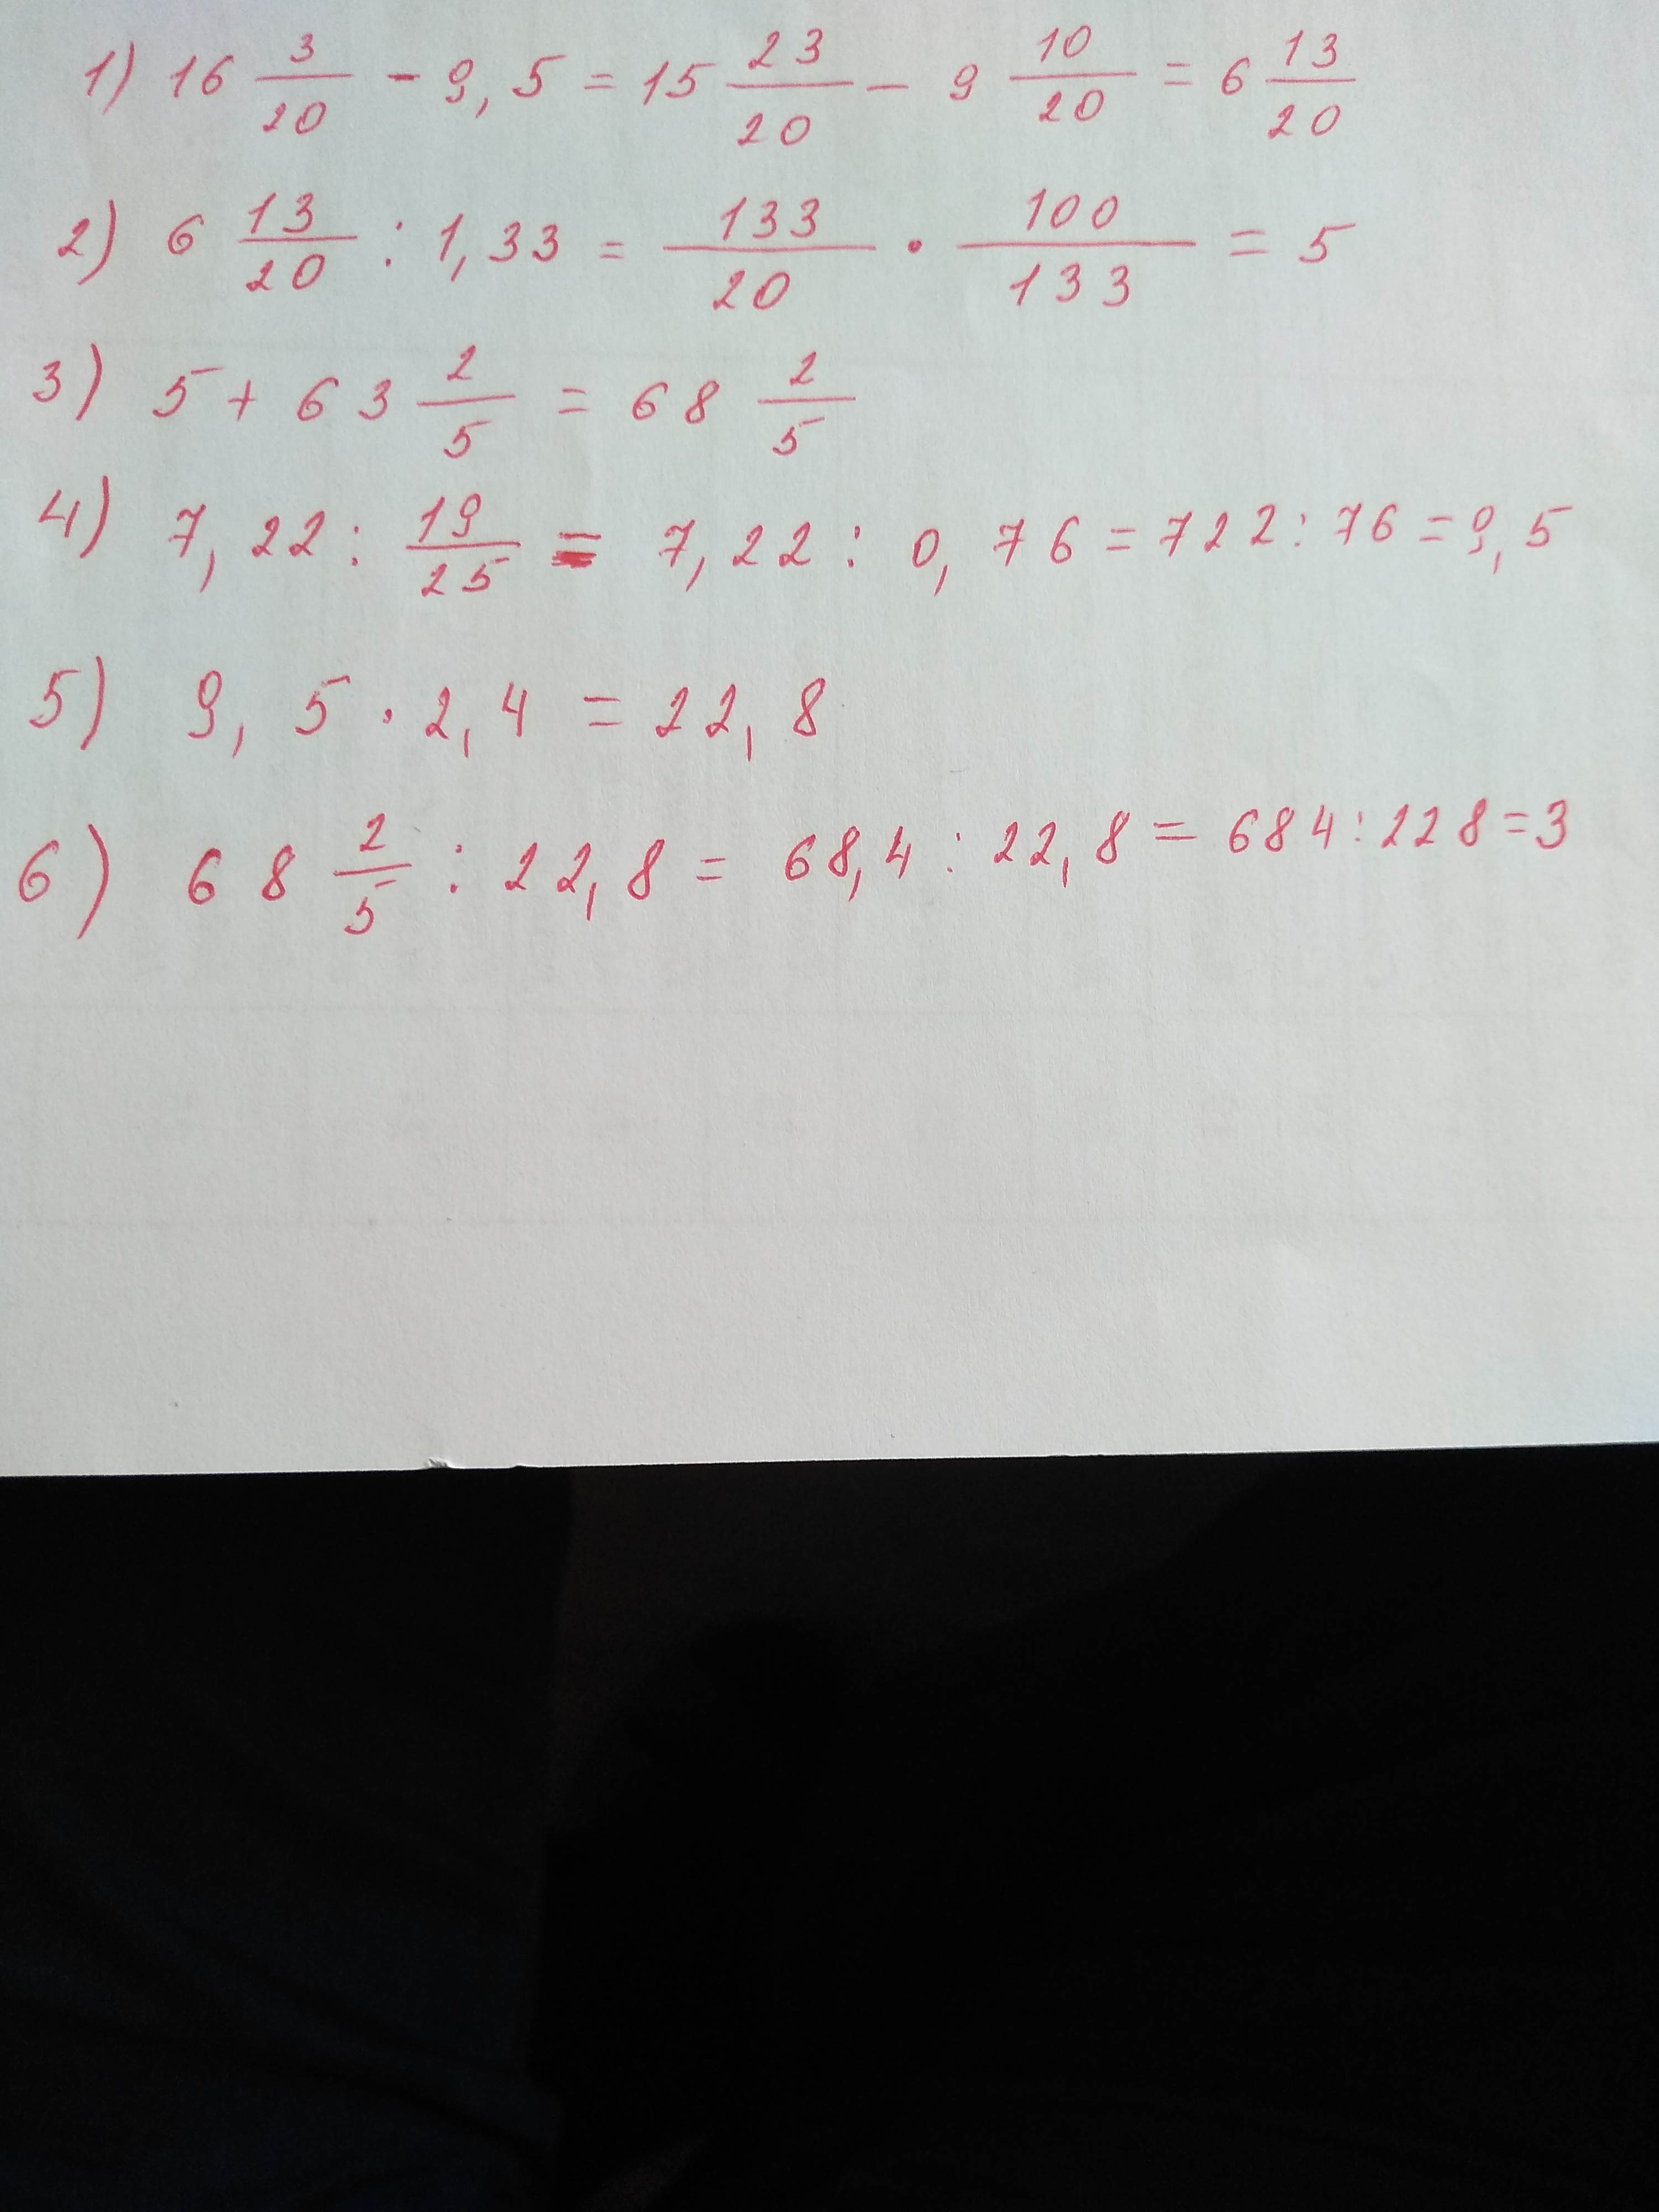 1) 16 3/20 - 9,5 = 15 23/20 - 9 10/20 = 6 13/20
2) 6 13/20 : 1,33 = 133/20 · 100/133 = 5
3) 5 + 63 2/5 = 68 2/5
4) 7,22 : 19/25 = 7,22 : 0,76 = 722 : 76 = 9,5
5) 9,5 · 2,4 = 22,8
6) 68 2/5 : 22,8 = 68,4 : 22,8 = 684 : 228 = 3